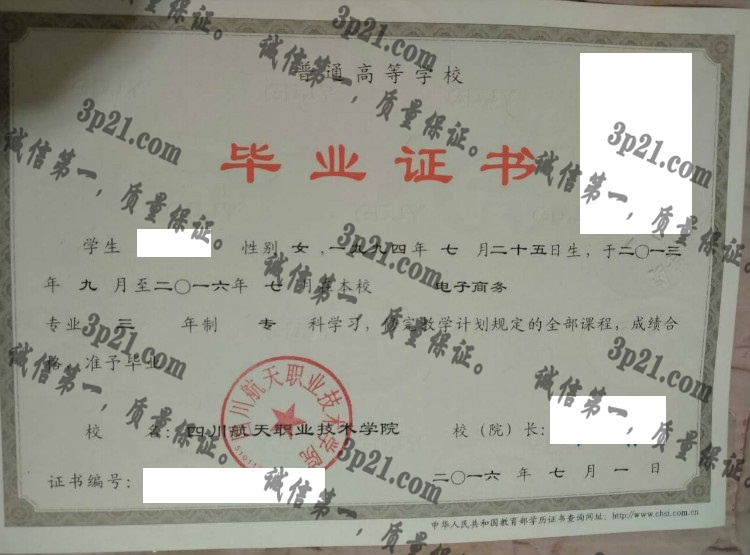 普通高等学校
毕业证书
学生 性别 女 ，一九九四年 七 月二十五日生，于二〇一三
年 九 月至二〇一六年 七 月在本校 电子商务
专业 三 年制 专 科学习， 定教学计划规定的全部课程，成绩合
格，准予毕业
校 名：四川航天职业技术学院 校（院）长：
证书编号： 二〇一六年 七 月 一 日
中华人民共和国教育部学历证书查询网址：http://www.chsi.com.cn
四川航天职业技术学院
3p21.com
诚信第一，质量保证。
3p21.com
诚信第一，质量保证。
3p21.com
诚信第一，质量保证。
3p21.com
诚信第一，质量保证。
3p21.com
诚信第一，质量保证。
3p21.com
诚信第一，质量保证。
3p21.com
诚信第一，质量保证。
3p21.com
诚信第一，质量保证。
3p21.com
诚信第一，质量保证。